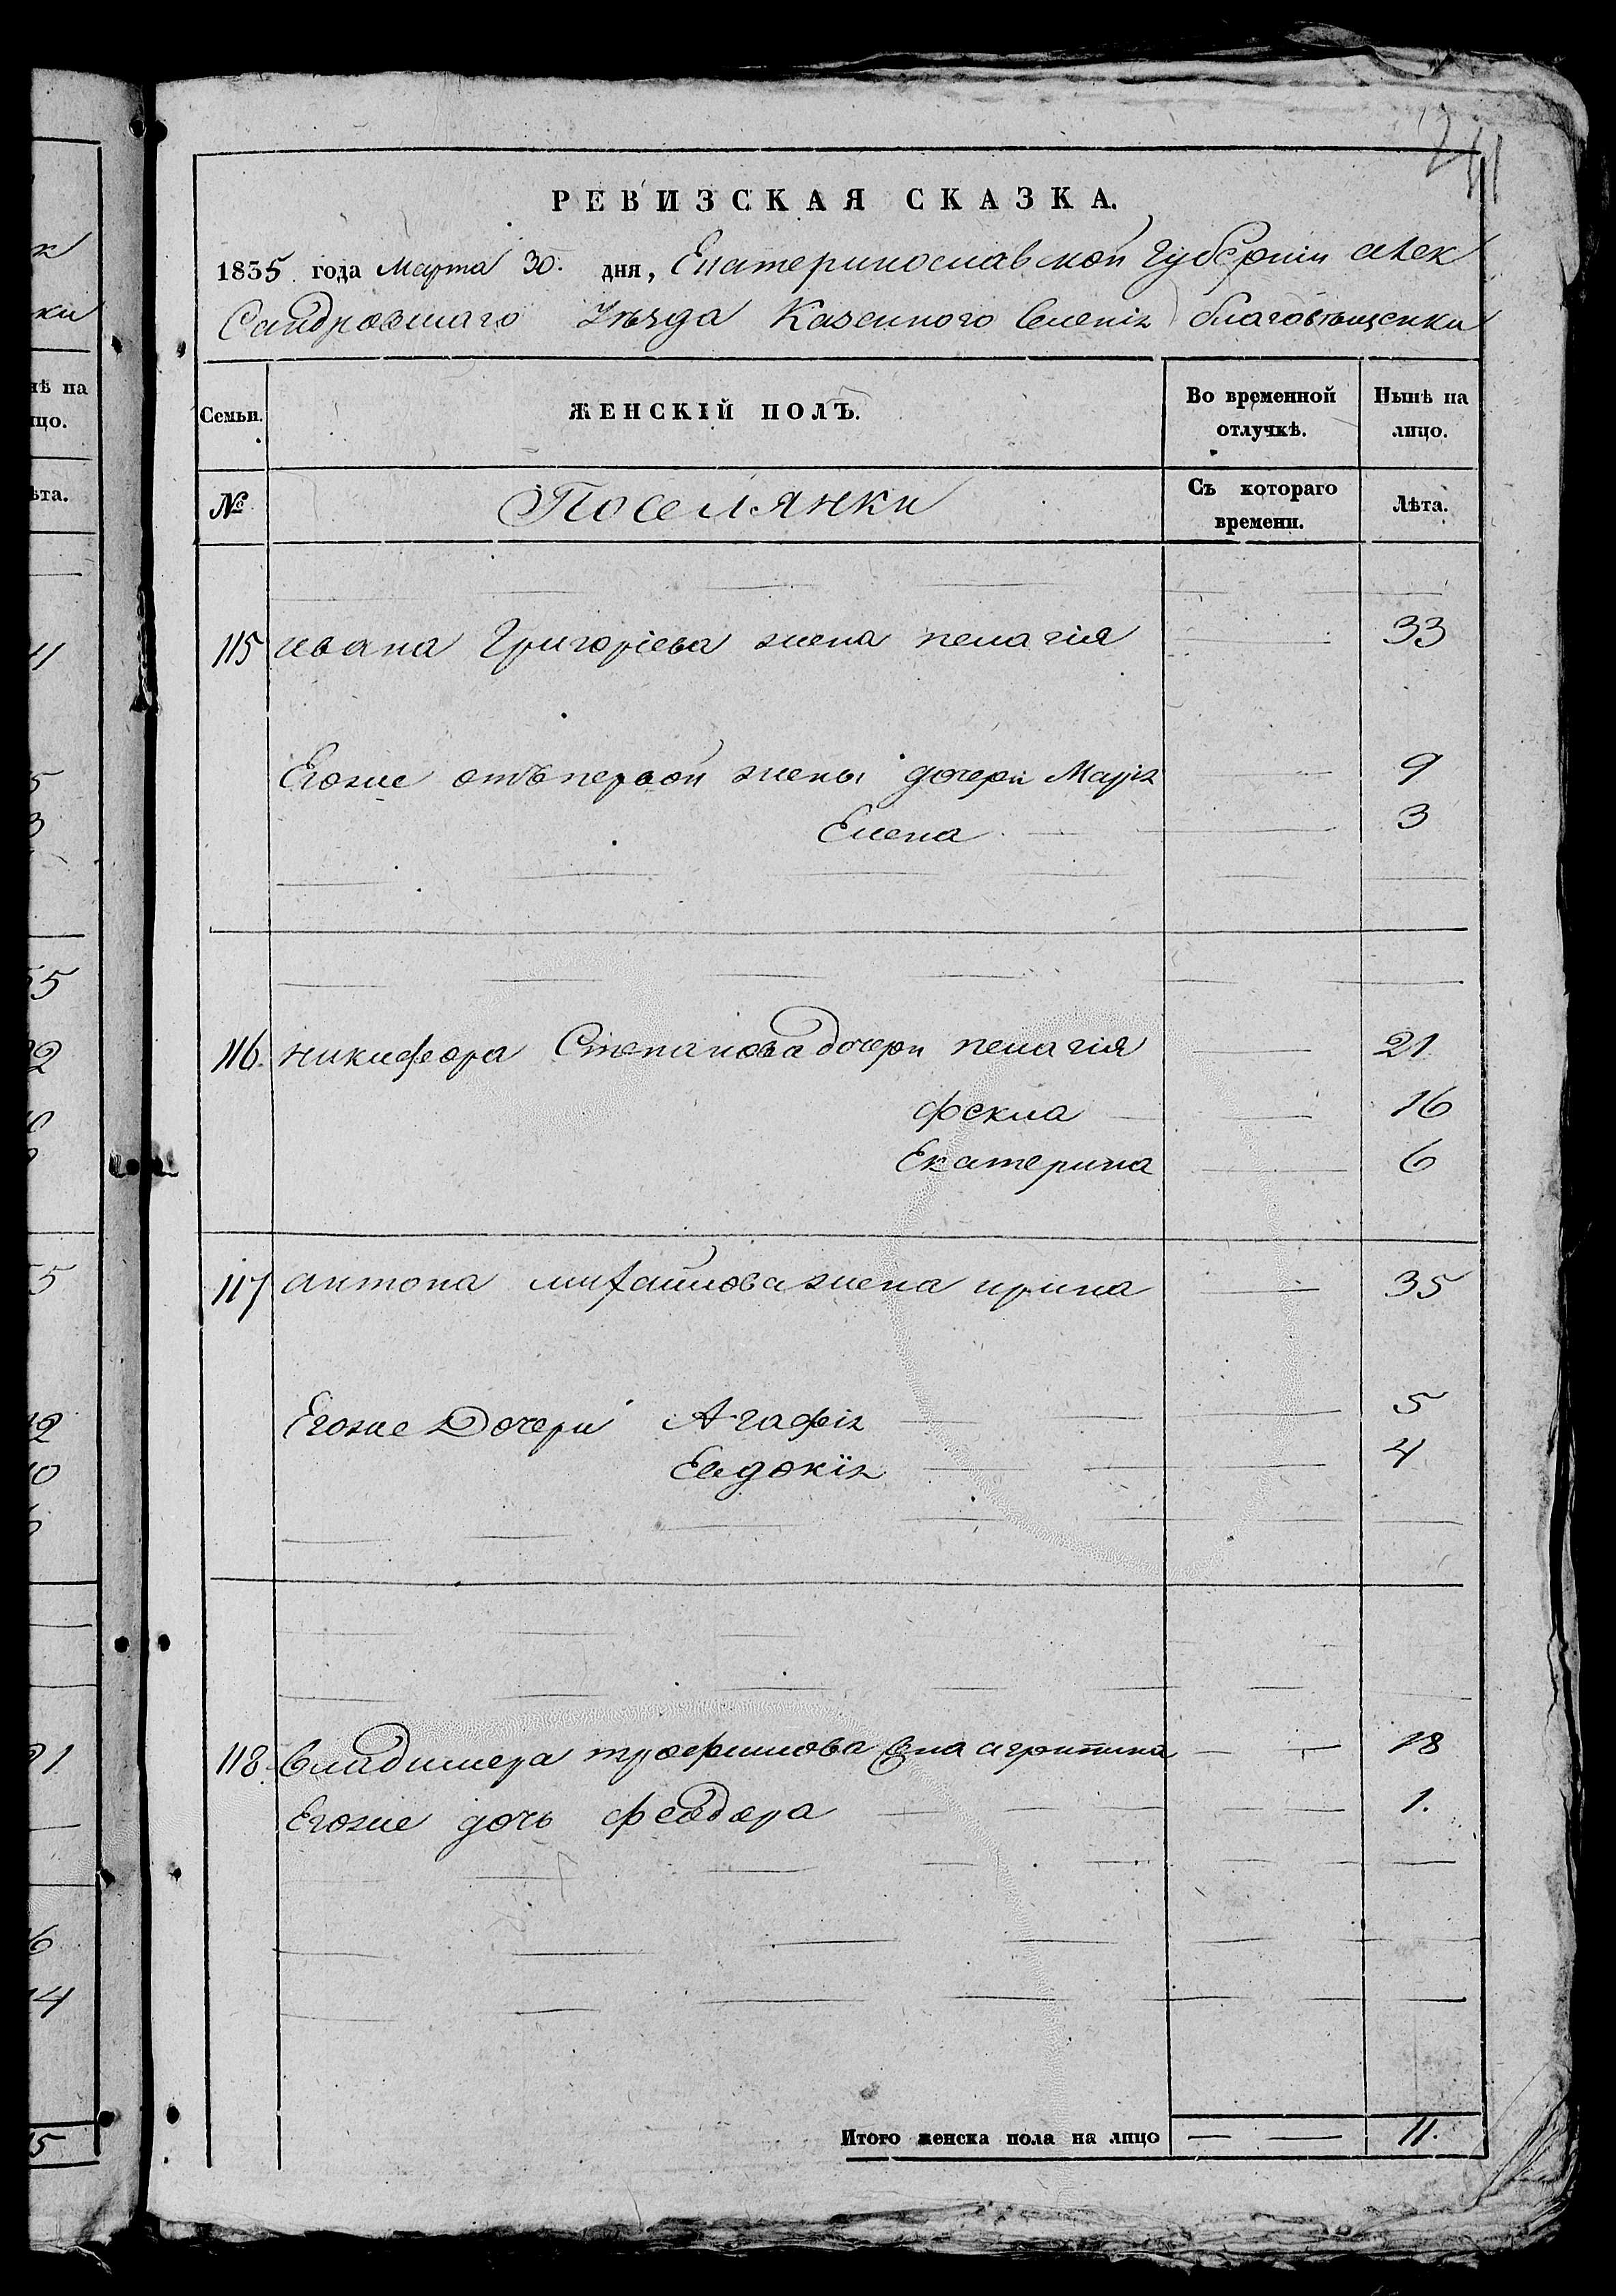 РЕВИЗСКАЯ СКАЗКА.
1835 года Марта 30. дня, Екатеринославской губерніи алек
Сандровскаго Уѣзда Казенного Селенія благовѣщенки
Семьи.
ЖЕНСКІЙ ПОЛЪ.
Во временной отлучкѣ.
Нынѣ на лицо.
№
Поселянки
Съ котораго времени.
Лѣта.
115 ивана Григоріева жена пелагія 33
Егоже отъ первой жены дочери Марія 9
Елена 3
116. никифора Степанова дочери пелагія 21.
фекла 16
Екатерина 6
117 антона михайлова жена ирина 35
Егоже Дочери Агафія 5
Евдокія 4
118. владимера трофимова жена агрипина 18
Егоже дочь феодора 1.
Итого женска пола на лицо 11.